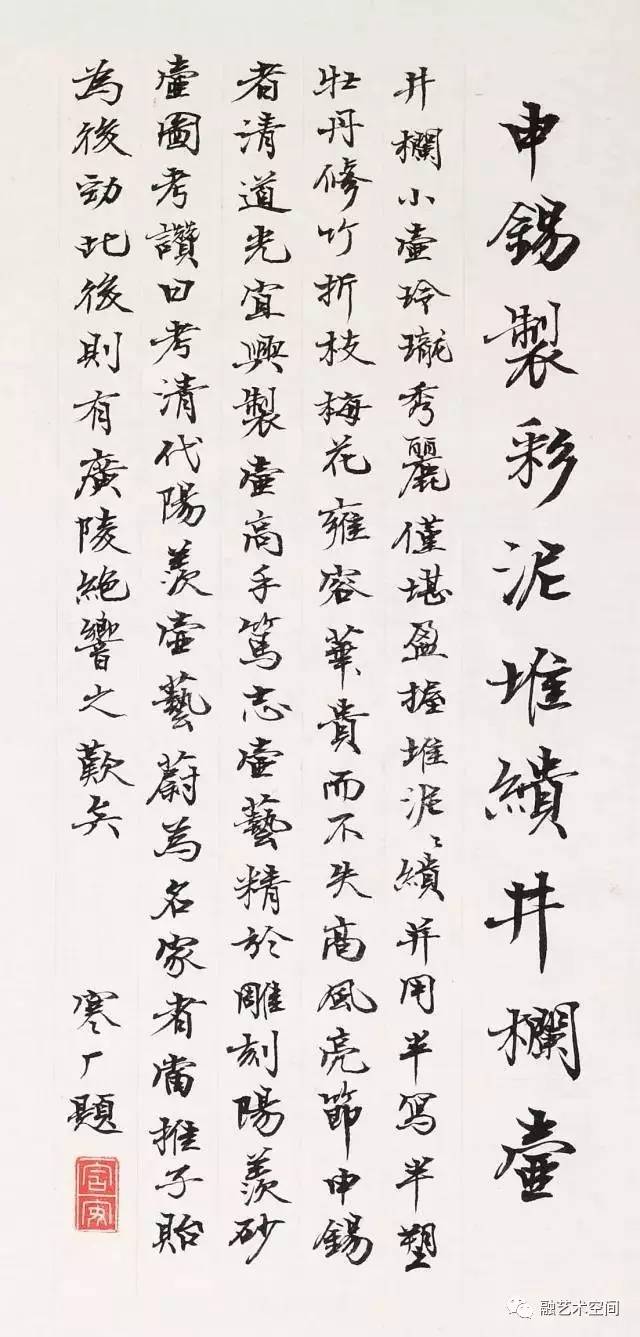 申錫製彩泥堆繢井欄壺
井欄小壺玲瓏秀麗僅堪盈握堆泥〻繢并用半寫半塑
牡丹修竹折枝梅花雍容華貴而不失高風亮節申錫
者清道光宜興製壺高手篤志壺藝精於雕刻陽羨砂
壺圖考讚曰考清代陽羨壺藝蔚為名家者當推子貽
為後勁此後則有廣陵絕響之歎矣
寒厂題
融艺术空间